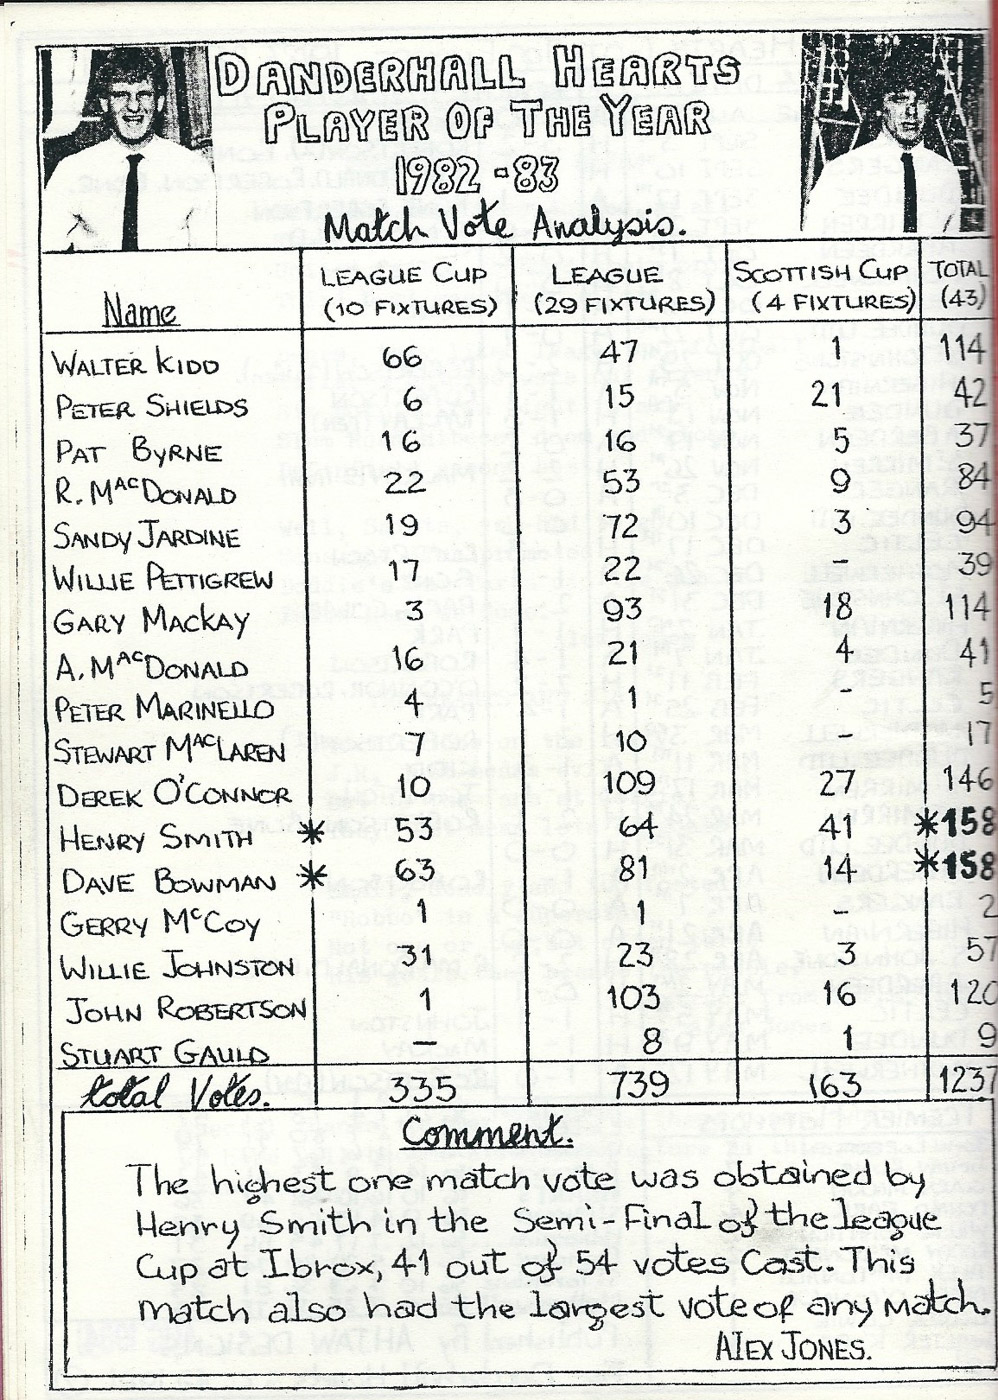 DANDERHALL HEARTS
PLAYER OF THE YEAR
1982-83
Match Vote Analysis.
Name LEAGUE CUP (10 FIXTURES) LEAGUE (29 FIXTURES) SCOTTISH CUP (4 FIXTURES) TOTAL (43)
WALTER KIDD 66 47 1 114
PETER SHIELDS 6 15 21 42
PAT BYRNE 16 16 5 37
R. MACDONALD 22 53 9 84
SANDY JARDINE 19 72 3 94
WILLIE PETTIGREW 17 22 - 39
GARY MACKAY 3 93 18 114
A. MACDONALD 16 21 4 41
PETER MARINELLO 4 1 - 5
STEWART MACLAREN 7 10 - 17
DEREK O'CONNOR 10 109 27 146
HENRY SMITH * 53 64 41 *158
DAVE BOWMAN * 63 81 14 *158
GERRY McCOY 1 1 - 2
WILLIE JOHNSTON 31 23 3 57
JOHN ROBERTSON 1 103 16 120
STUART GAULD - 8 1 9
total Votes. 335 739 163 1237
Comment.
The highest one match vote was obtained by
Henry Smith in the Semi-Final of the league
Cup at Ibrox, 41 out of 54 votes Cast. This
match also had the largest vote of any match.
ALEX JONES.